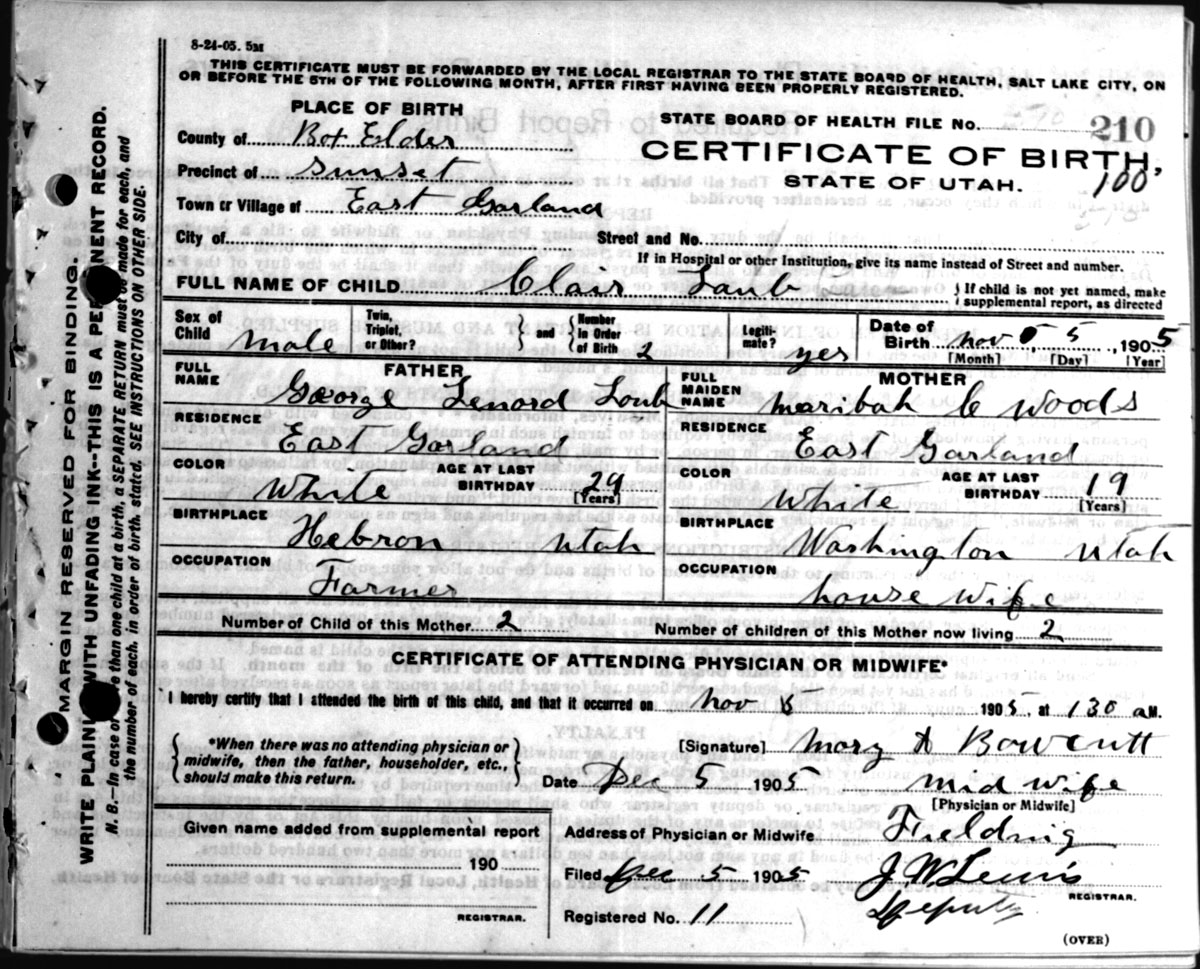 8-24-05. 5M
THIS CERTIFICATE MUST BE FORWARDED BY THE LOCAL REGISTRAR TO THE STATE BOARD OF HEALTH, SALT LAKE CITY, ON
OR BEFORE THE 5TH OF THE FOLLOWING MONTH, AFTER FIRST HAVING BEEN PROPERLY REGISTERED.
PLACE OF BIRTH
County of Box Elder
Precinct of Sunset
Town or Village of East Garland
City of
STATE BOARD OF HEALTH FILE No. 210
CERTIFICATE OF BIRTH,
STATE OF UTAH. 100
Street and No.
If in Hospital or other Institution, give its name instead of Street and number.
FULL NAME OF CHILD Clair Laub } If child is not yet named, make supplemental report, as directed
Sex of Child male
Twin, Triplet, or Other? } and { Number in Order of Birth 2
Legitimate? yes
Date of Birth Nov 5, 1905
[Month] [Day] [Year]
FATHER
FULL NAME George Lenord Laub
RESIDENCE
East Garland
COLOR White AGE AT LAST BIRTHDAY 29 [Years]
BIRTHPLACE
Hebron Utah
OCCUPATION
Farmer
MOTHER
FULL MAIDEN NAME Maribah C Woods
RESIDENCE
East Garland
COLOR White AGE AT LAST BIRTHDAY 19 [Years]
BIRTHPLACE
Washington Utah
OCCUPATION
house wife
Number of Child of this Mother 2 Number of children of this Mother now living 2
CERTIFICATE OF ATTENDING PHYSICIAN OR MIDWIFE*
I hereby certify that I attended the birth of this child, and that it occurred on Nov 5 1905, at 130 AM.
{ *When there was no attending physician or midwife, then the father, householder, etc., should make this return. }
[Signature] Mary A Bowcutt
Date Dec 5 1905 Mid wife
[Physician or Midwife]
Given name added from supplemental report
190
REGISTRAR.
Address of Physician or Midwife Fielding
Filed Dec 5 1905 J. W. Lewis
REGISTRAR.
Registered No. 11 Deputy
(OVER)
MARGIN RESERVED FOR BINDING.
WRITE PLAINLY WITH UNFADING INK--THIS IS A PERMANENT RECORD.
N. B.—In case of more than one child at a birth, a SEPARATE RETURN must be made for each, and
the number of each, in order of birth, stated. SEE INSTRUCTIONS ON OTHER SIDE.